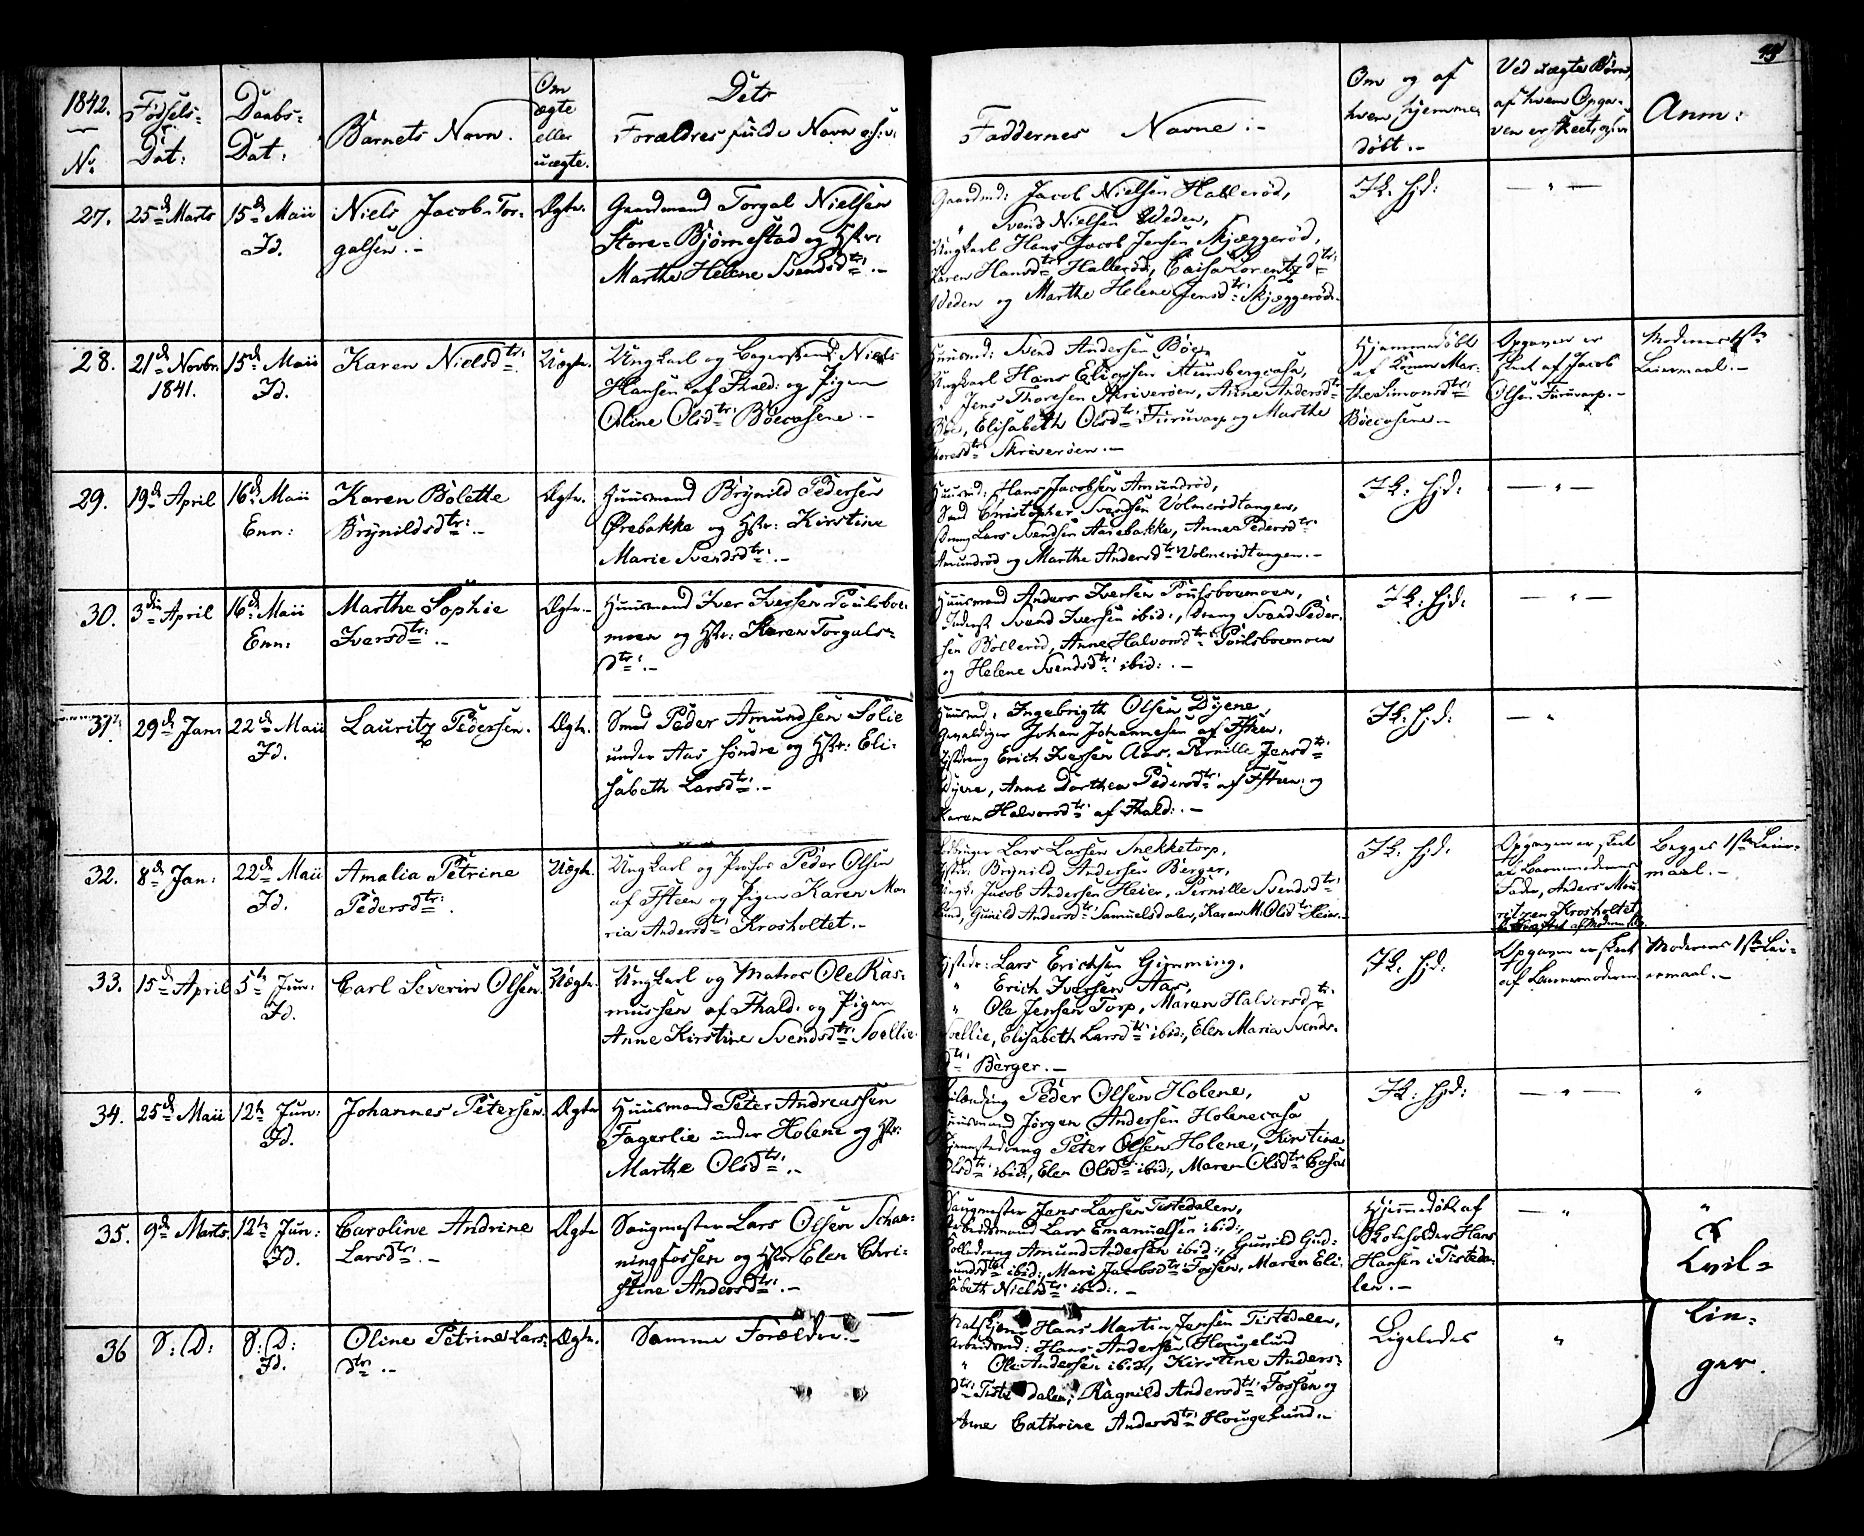 1842.
No.
Fødsels-
Dat:
Daabs-
Dat:
Barnets Navn.
Om
ægte
eller
uægte.
Dets
Forældres fulde Navn
Faddernes Navne:-
Om og af
hvem hjemme-
døbt.-
Ved uægte Børn,
af hvem Opga-
ven er skeet,
Anm:
27.
25de Marts
15de Maii
Id.
Niels Jacob Tor-
galsen.-
Ægte.
Gaardmand Torgal Nielsen
Store-Bjørnestad og Hstr:
Marthe Helene Svendsdtr:.-
Gaardmd: Jacob Nielsen Hallerød,
" Svend Nielsen Weden,
Ungkarl Hans Jacob Jensen Skjæggerød,
Karen Hansdtr: Hallerød, Caisa Lorentzdtr:
Weden og Marthe Helene Jensdtr: Skjæggerød.-
Ik: hjd:
— " —
28.
21de Novbr.
1841.
15de Maii
Id.
Karen Nielsdtr:
Uægte.
Ungkarl og Niels
Hansen af Fhald: og Pigen
Oline Olsdtr: Böecasene.-
Huusmd: Svend Andersen Böe,
Ungkarl Hans
" Jens Thoresen Skriverøen, Anne Andersdtr
Böe, Elisabeth Olsdtr: Furuvarp og Marthe
Thoresdtr: Skriverøen.-
Hjemmedöbt
af Konen Mar-
the Simonsdtr:
Böecasene.-
Opgaven er
skeet af Jacob
Olsen Furuvarp.-
Moderens 1ste
Leiermaal.-
29.
19de April
16de Maii
Enn:
Karen Bolette
Brynildsdtr:.-
Ægte.
Huusmand Brynild Pedersen
Ørebakke og Hstr: Kirstine
Marie Svendsdtr:.-
Huusmd: Hans Jacobsen Amundrød,
Smd Christopher Svendsen Volmerödtangen,
Dreng Lars Svendsen Aarebakke, Anne Pedersdtr:
Amundrød og Marthe Andersdtr: Volmerödtangen.-
Ik: hjd:
— " —
30.
3die April
16de Maii
Enn:
Marthe Sophie
Iversdtr:.-
Ægte.-
Huusmand Iver Iversen Poulsboe-
moen og Hstr: Karen Torgals-
dtr:.-
Huusmand Anders Iversen Poulsboemoen,
Inderst Svend Iversen ibid:, Dreng Svend Peder-
sen Böllerød, Anne Halvorsdtr: Poulsboemoen
og Helene Svendsdtr: ibid:.-
Ik: hjd:
— " —
31.
29de Jan:
22de Maii
Id.
Lauritz Pedersen.
Ægte.
Smd Peder Amundsen Solie
under Aas söndre og Hstr: Eli-
sabeth Larsdtr:.-
Huusmd: Ingebrigth Olsen Dyene,
Johan Johannesen af Fsteen,
Erich Iversen Aas, Pernille Jensdtr:
Dyene, Anne Dorthea Pedersdtr: af Fsteen: og
Karen Halvorsdtr: af Fhald:.-
Ik: hjd:
— "
32.
8de Jan:
22de Maii
Id.
Amalia Petrine
Pedersdtr:.
Uægte.
Ungkarl og Peder Olsen
af Fsteen og Pigen Karen Ma-
ria Andersdtr: Krosholtet.-
Lars Larsen Snekketorp,
Brynild Andersen Berger,
Jacob Andersen Heier, Pernille Svendsdtr:
Gunild Andersdtr: Samuelsdalen, Karen M: Olsdtr: Heier.-
Ik: hjd:
Opgaven er skeet
af Barnemoderens
Fader, Anders Mou-
ritzen Krosholtet
Begges 1ste Leier-
maal.-
33.
15de April
5te Jun:
Id.
Carl Severin Olsen.
Uægte.
Ungkarl og Matros Ole Ras-
mussen af Fhald: og Pigen
Anne Kirstine Svendsdtr: Soellie.
Lars Erichsen Gimming,
" Erich Iversen Aas,
" Ole Jensen Torp, Maren Halvorsdtr:
Soellie, Elisabeth Larsdtr: ibid:, Elen Maria Svends-
dtr: Berger.-
Ik: hjd:
Opgaven er skeet
af Barnemoderen
Moderens 1ste Lei-
ermaal.-
34.
25de Maii
12te Jun:
Id.
Johannes Petersen.
Ægte
Huusmand Peter Andreassen
Fagerlie under Holene og Hstr:
Marthe Olsdtr:.-
Peder Olsen Holene,
Huusmand Jörgen Andersen Holenecasa
Peter Olsen Holene, Kirstine
Olsdtr: ibid:, Elen Olsdtr: ibid:, Maren Olsdtr: Casa
Ik: hjd:
— " —
"
35.
9de Marts.
12te Jun:
Id.
Caroline Andrine
Larsdtr:.-
Ægte
Saugmester Lars Olsen Skan-
ningfossen og Hstr Elen Chri-
stine Andersdtr:.-
Saugmester Jens Larsen Tistedalen,
Arbeidsmand Lars Emanuelsen ibid:,
Amund Andersen ibid:, Gunild Gud-
mundsdtr: ibid:, Mari Jacobsdtr: Fossen, Maren Eli-
sabeth Nielsdtr: ibid:.-
Hjemmedöbt af
Skoleholder Hans
Hansen i Tisteda-
len.-
— "
"
Tvil-
lin-
ger.
36
S: D:
S: D:
Id.
Oline Petrine Lars-
dtr:.-
Ægte.
Samme Forældre.-
Hans Martin Jensen Tistedalen,
Arbmd: Hans Andersen Hougelund
" Ole Andersen ibid, Kirstine Anders-
dtr: Tistedalen, Ragnild Andersdtr: Fossen og
Anne Cathrine Andersdtr: Hougelund.-
Ligeledes
"